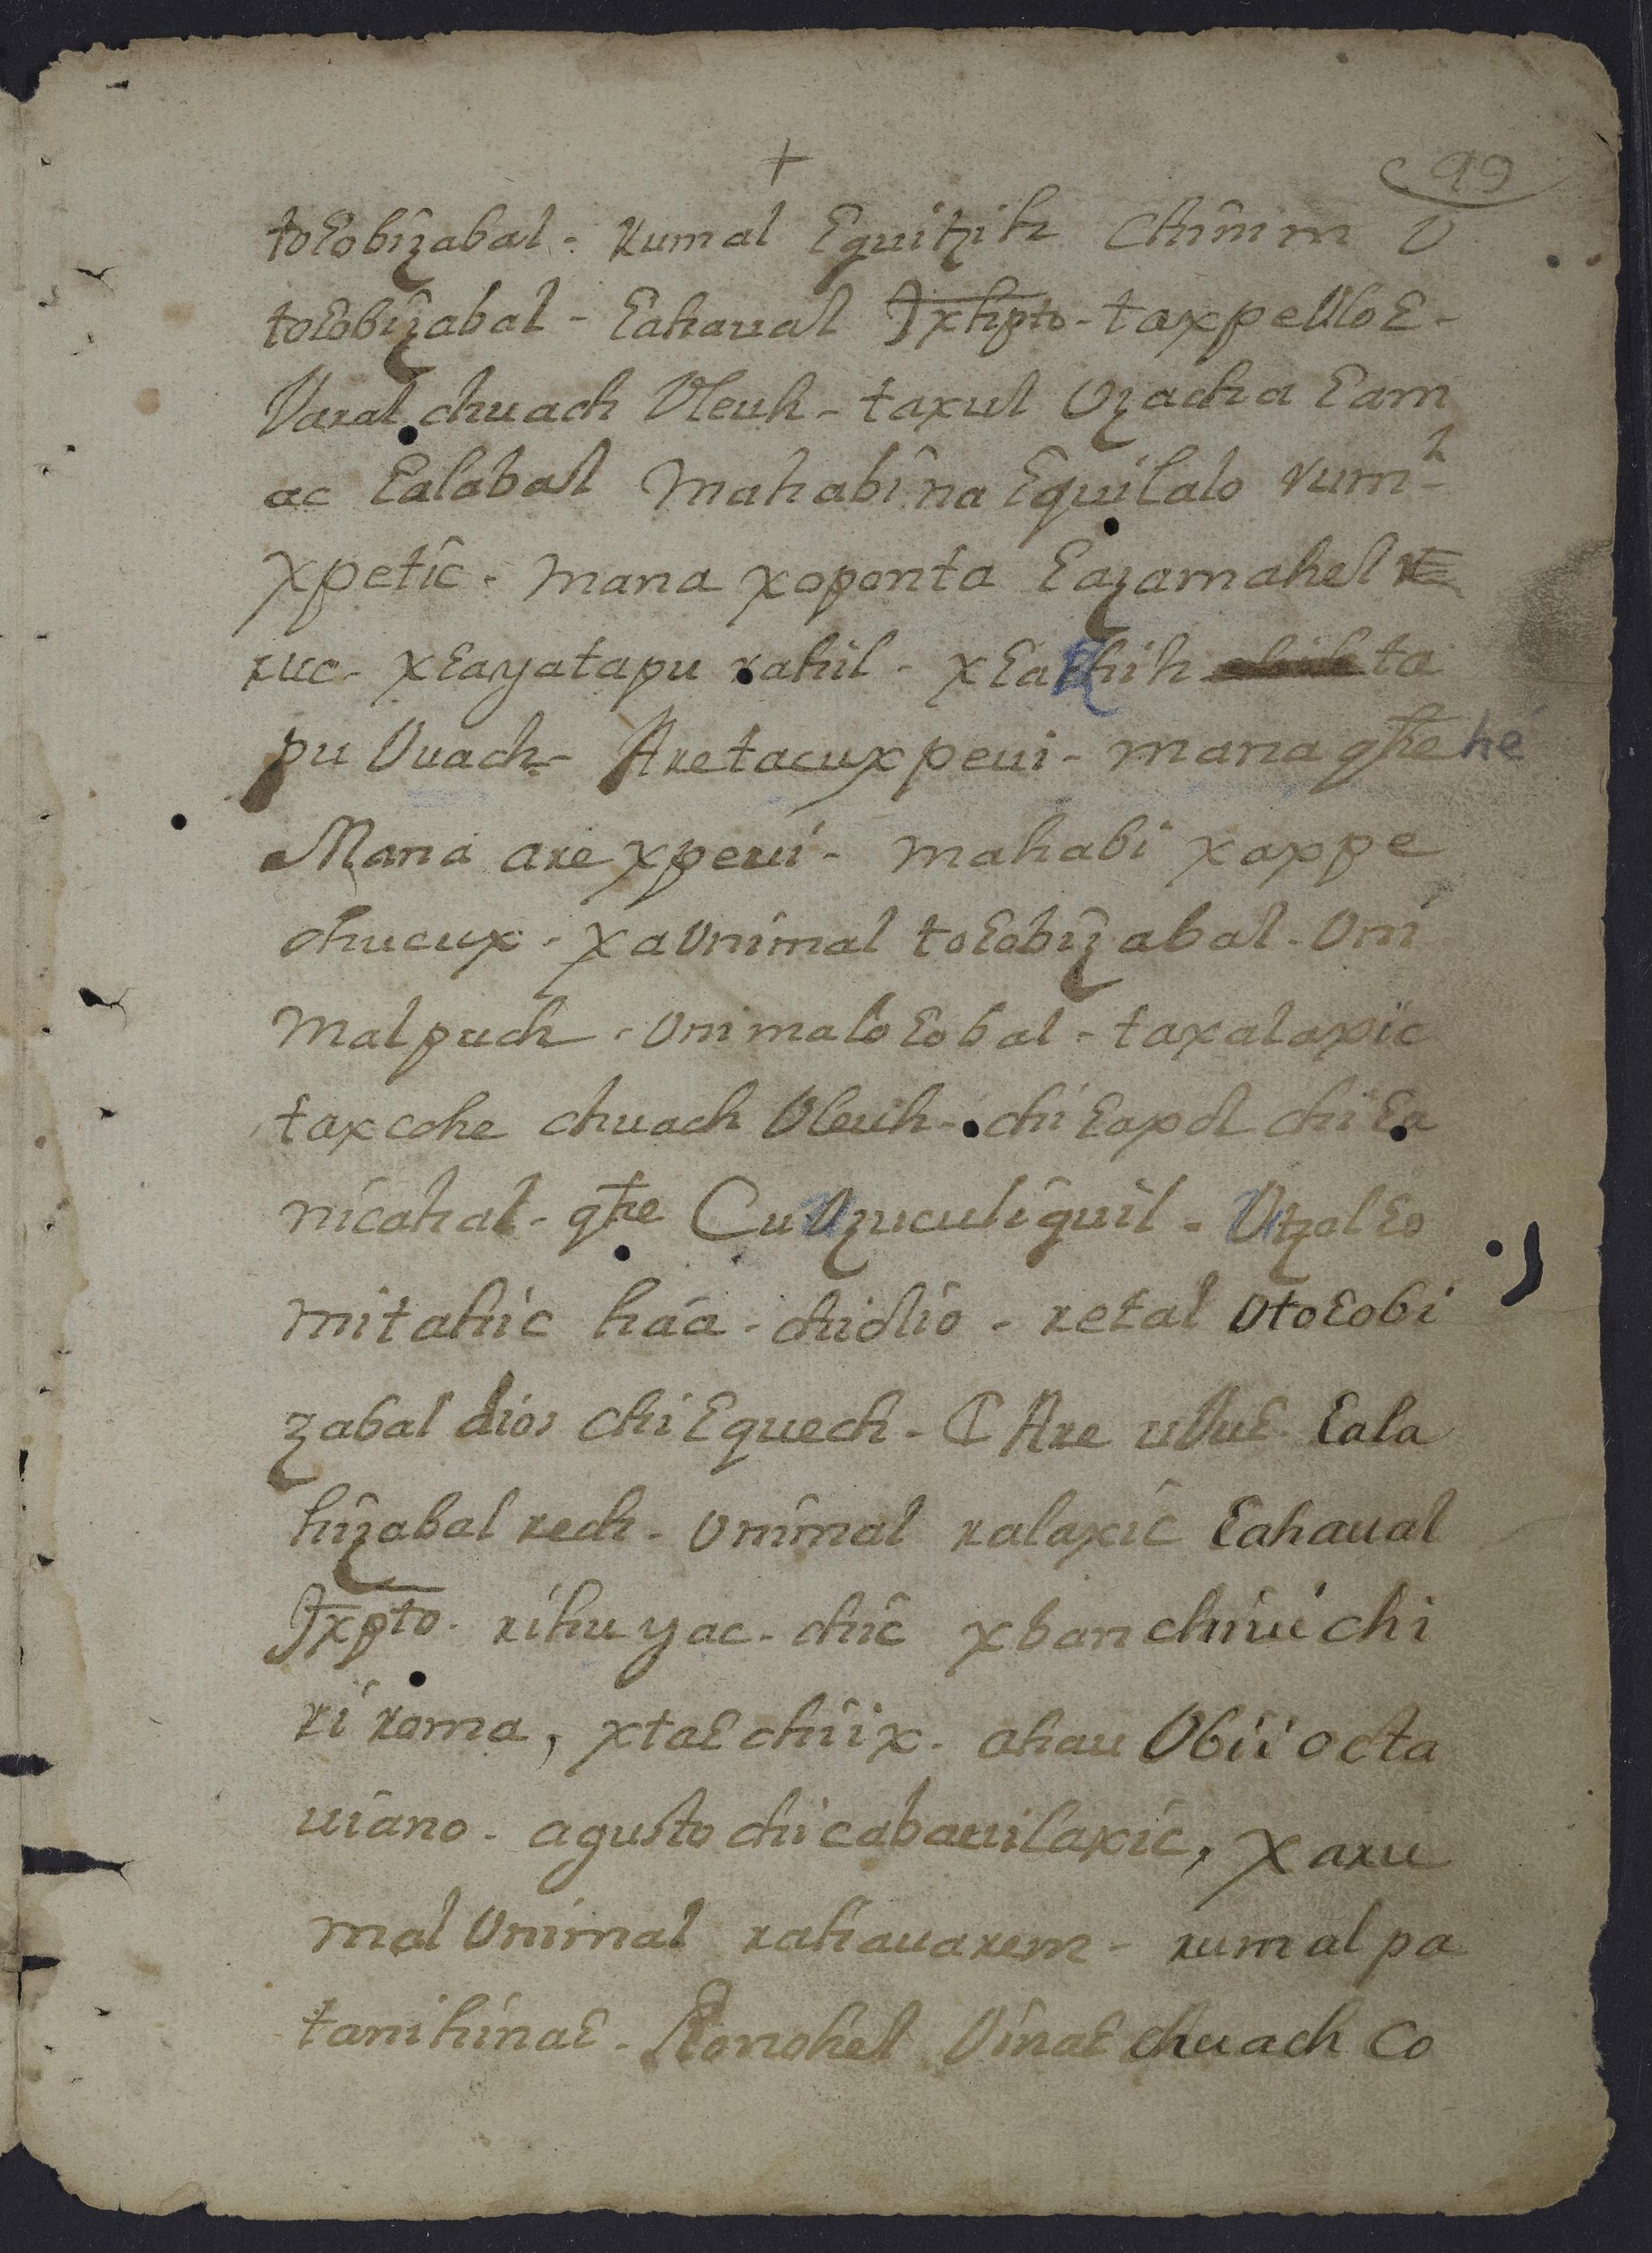 +
99
toɛobizabal - rumal ɛquitzih chinim v
toɛobizabal - ɛahaual Jxhpto - taxpe vloɛ -
Varal chuach Vleuh - taxul vzacha ɛam
ac ɛalabal mahabi na ɛquilalo rumˡ -
xpetic - mana xoponta ɛazamahel
ruc - xɛayatapu rahil - xɛa hih ta
pu Vuach - Aretacuxpeui - mana qħe he
Mana are xpeui - mahabi xaxpe
chucux - xa vnimal toɛobizabal - vni
mal puch - vnimaloɛobal - taxalaxic
taxcohe chuach Vleuh - chi ɛaxol chi ɛa
nicahal - qħe Cu Vzuculiquil - Vtzalɛo
mitahic háa - chidio - retal vtoɛobi
zabal dios chi ɛquech - ¶ Are u Vuɛ ɛala
hizabal rech - vnimal ralaxic ɛahaual
Jxpto - rihu yac - chic xban chiui chi
ri roma, xtaɛchiix - ahau Vbii octa
uiano - agusto chi cabauilaxic, xaru
mal vnimal rahauarem - rumal pa
tanihinaɛ - Ronohel Vinaɛ chuach co